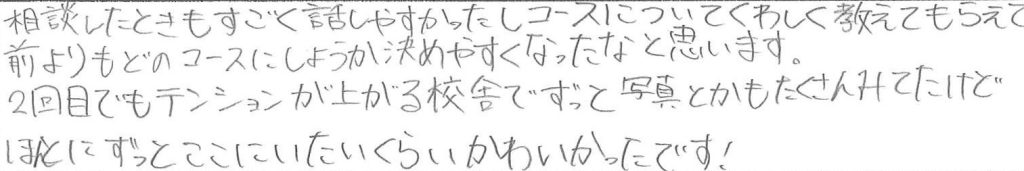 相談したときもすごく話しやすかったしコースについてくわしく教えてもらえて
前よりもどのコースにしようか決めやすくなったなと思います。
2回目でもテンションが上がる校舎でずっと写真とかもたくさんみてたけど
ほんとにずっとここにいたいくらいかわいかったです!